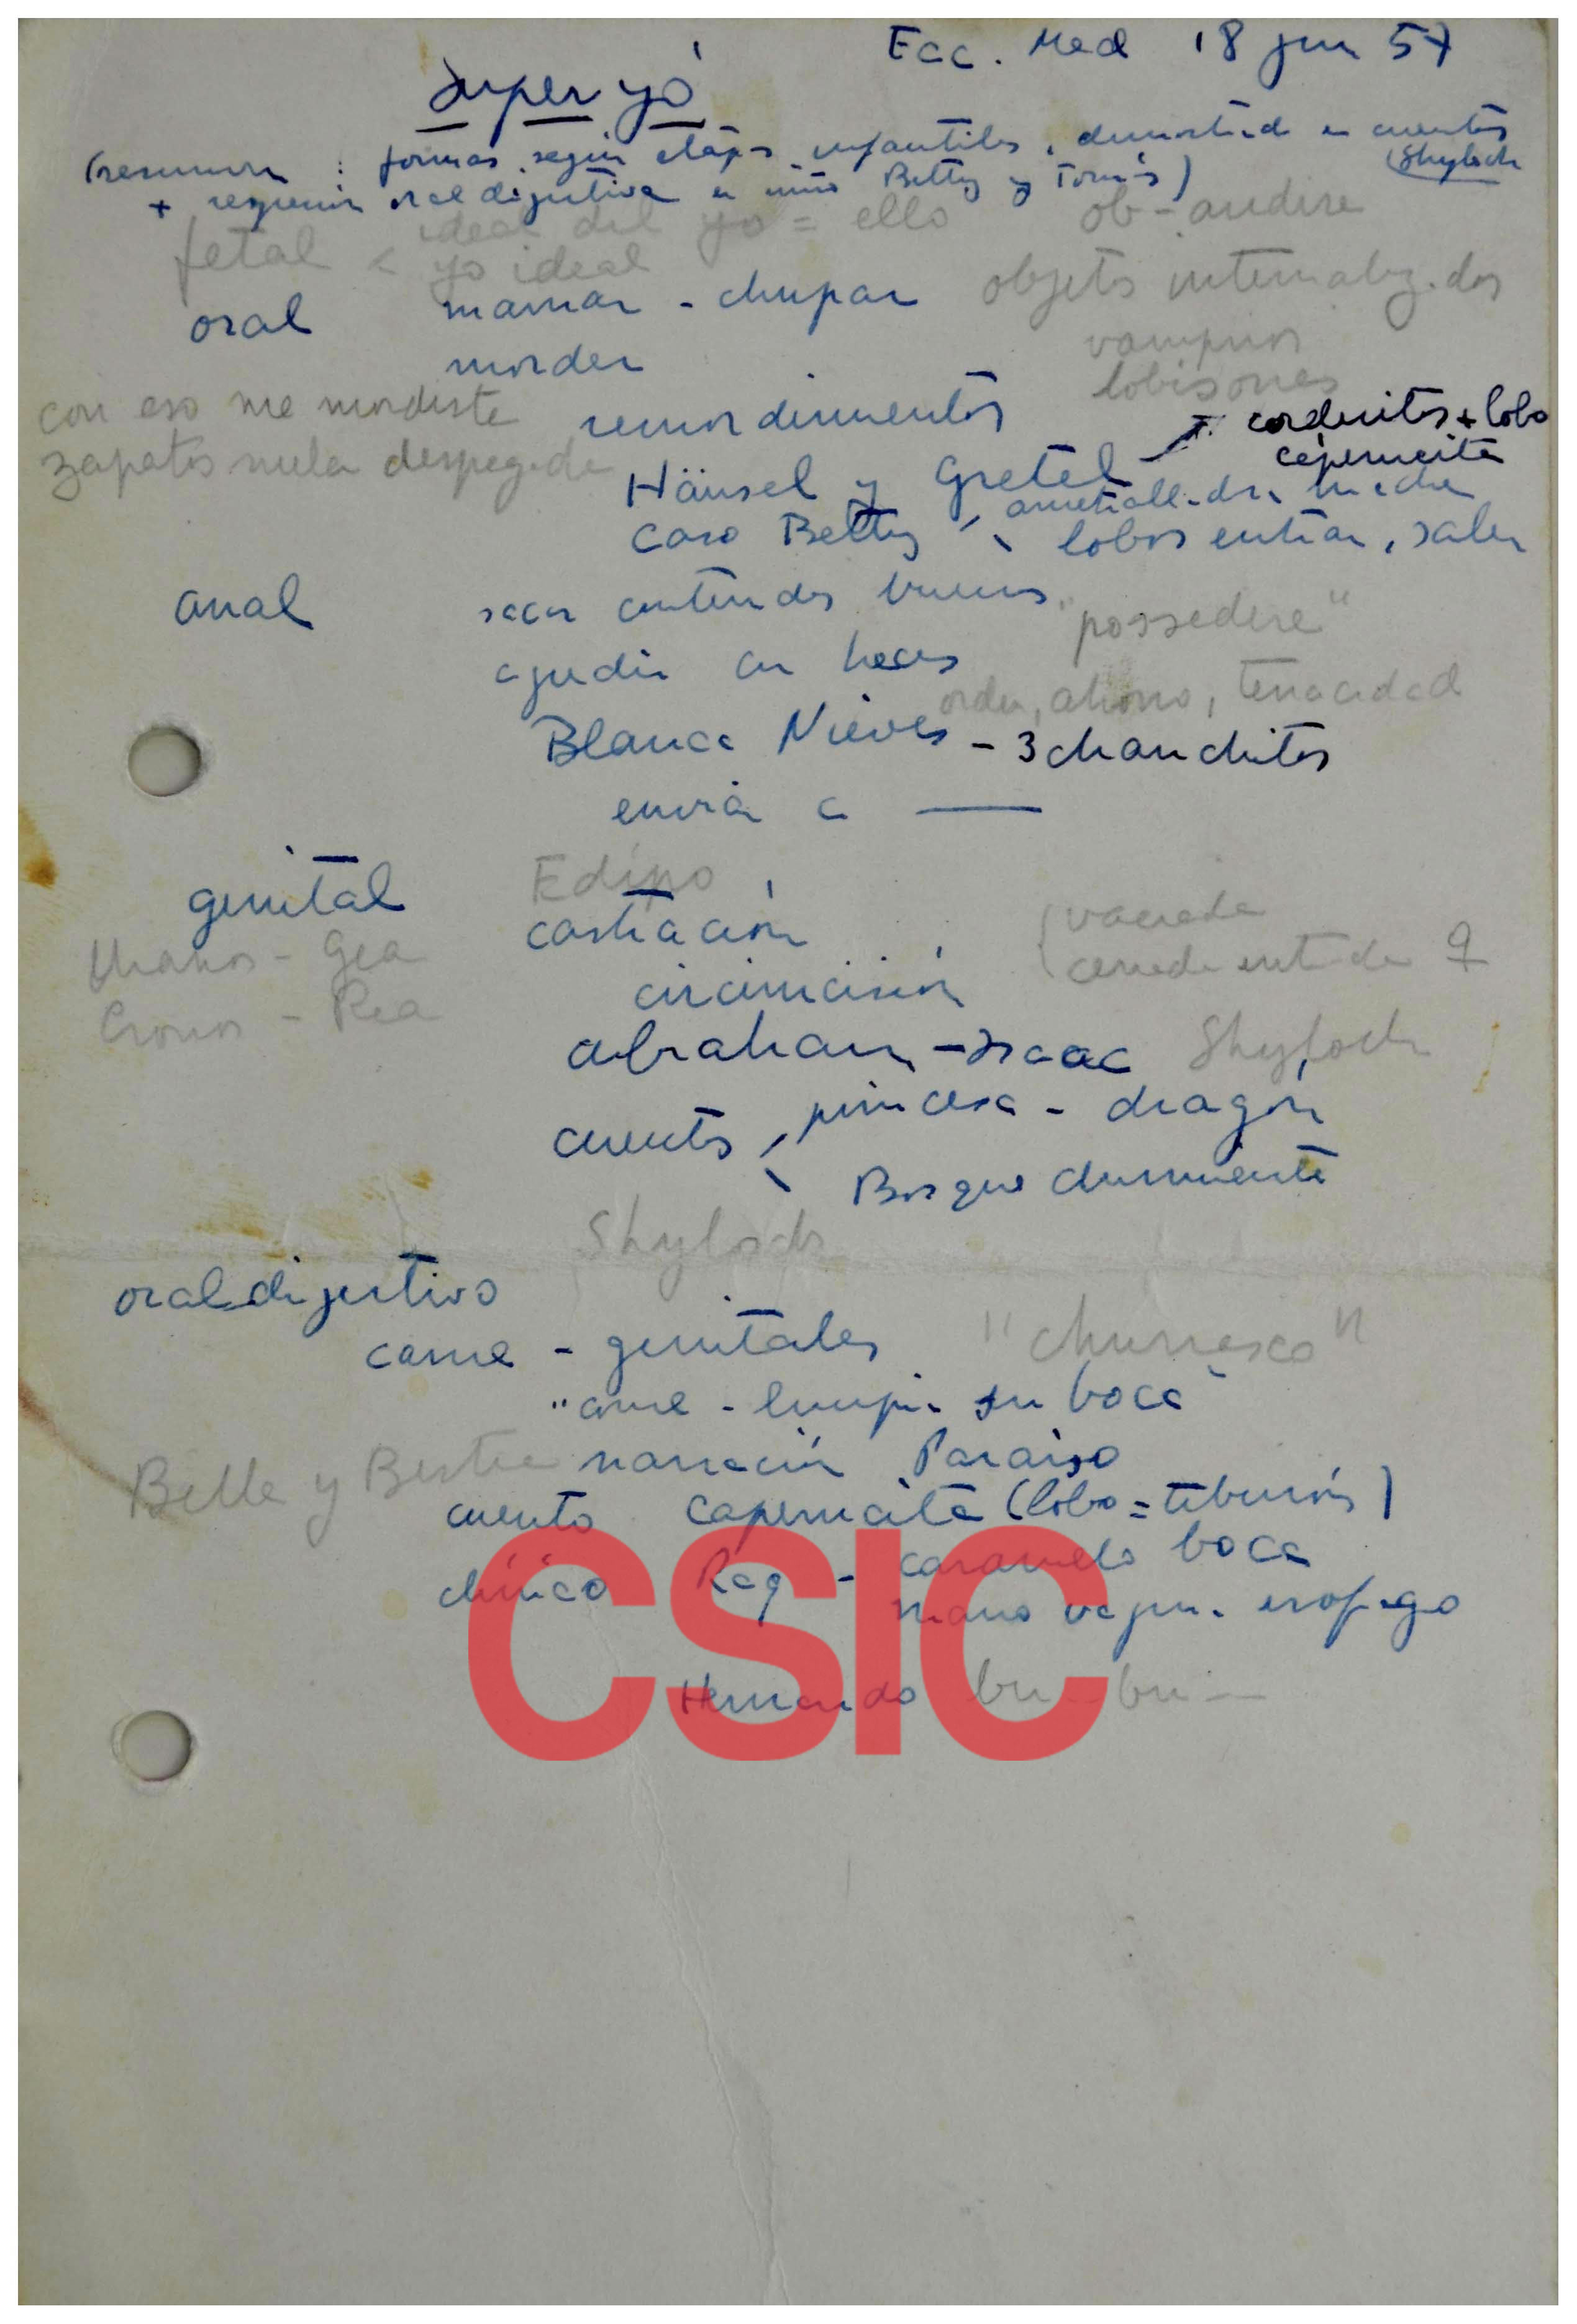 Fac. Med 18 jun 57
Super yó
(resumen : formas según etapas infantiles, demostrado en cuentos
(Shylock
+ regresión oral digestiva en niño Betty y Tomás)
ideal del yo = ello ob-audire
fetal < yo ideal
oral mamar - chupar objetos internalizados
morder vampiros
lobisones
con eso me mordiste remordimientos corderitos + lobo
zapatos suela despegada caperucita
Hänsel y Gretel
Caso Betty ametralladora madre
lobos entran, salen
anal sacar contenidos buenos "possedere"
agredir con heces
orden, ahorro, tenacidad
Blanca Nieves - 3 chanchitos
envidia a ——
genital Edipo
castración (vaciada
Uranos - Gea (cerrada entrada ♀
Cronos - Rea circuncisión
abraham - Isaac Shylock
cuentos princesa - dragón
Bosque durmiente
Shylock
oral digestivo
carne - genitales "churrasco"
"carne - limpia su boca"
Bella y Bestia narración Paraiso
cuento caperucita (lobo = tiburón)
clínico Raq - caramelo boca
mano vagina esofago
Hernando bu - bu —
CSIC